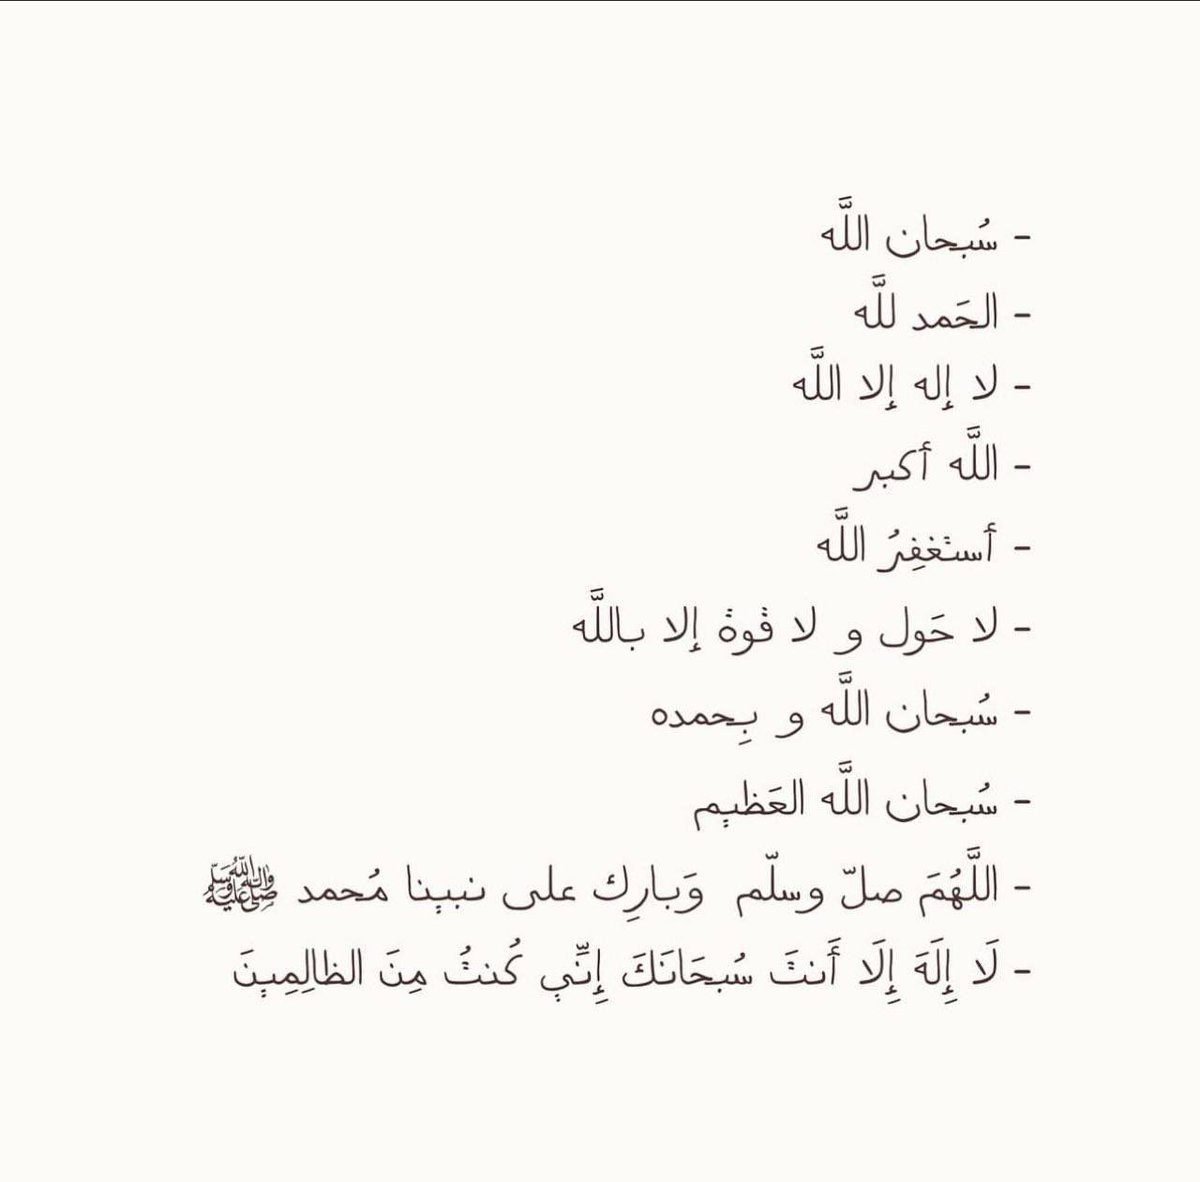 - سُبحان اللَّه
- الحَمد للَّه
- لا إله إلا اللَّه
- اللَّه أكبر
- أستغفِرُ اللَّه
- لا حَول و لا قوة إلا باللَّه
- سُبحان اللَّه و بِحمده
- سُبحان اللَّه العَظيم
- اللَّهُمَ صلّ وسلّم وَبارِك على نبينا مُحمد ﷺ
- لَا إِلَهَ إِلَا أَنتَ سُبحَانَكَ إِنِّي كُنتُ مِنَ الظالِمِينَ